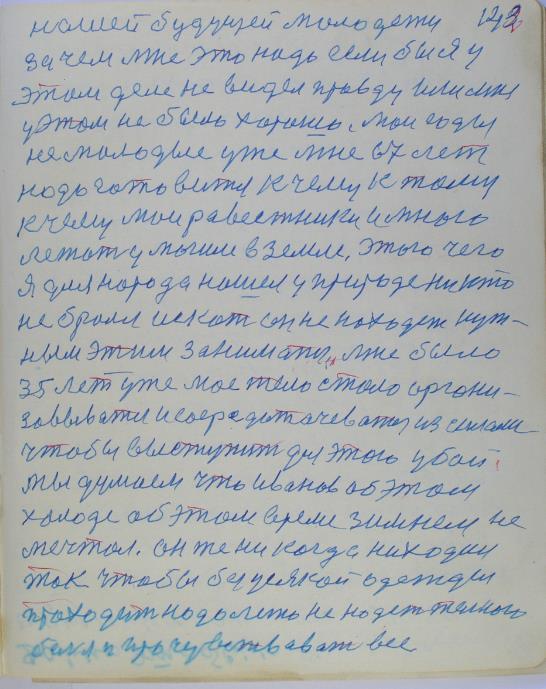 1293
нашей будущей молодежи
зачем мне это надо если бы я у
этом деле не видел правду или мне
у этом не было хорошо, мои годы
немолодые уже мне 67 лет
надо готовится к чему к тому
к чему мои равестники и много
лежат у могиле в земле, этого чего
я для народа нашел у природе никто
не брался искат он не находеж нуж-
ным этим заниматся, мне было
35 лет уже мое тело стало органи-
зоввывати и сосредотачеватся из силами
чтобы выступит для этого у бой
мы думаем что иванов об этом
холоде об этом време зимнем не
мечтал. он же никогда ни ходил
так чтобы без усякой одежды
проходит надо леть не надет теплого
беля и прочувствават все